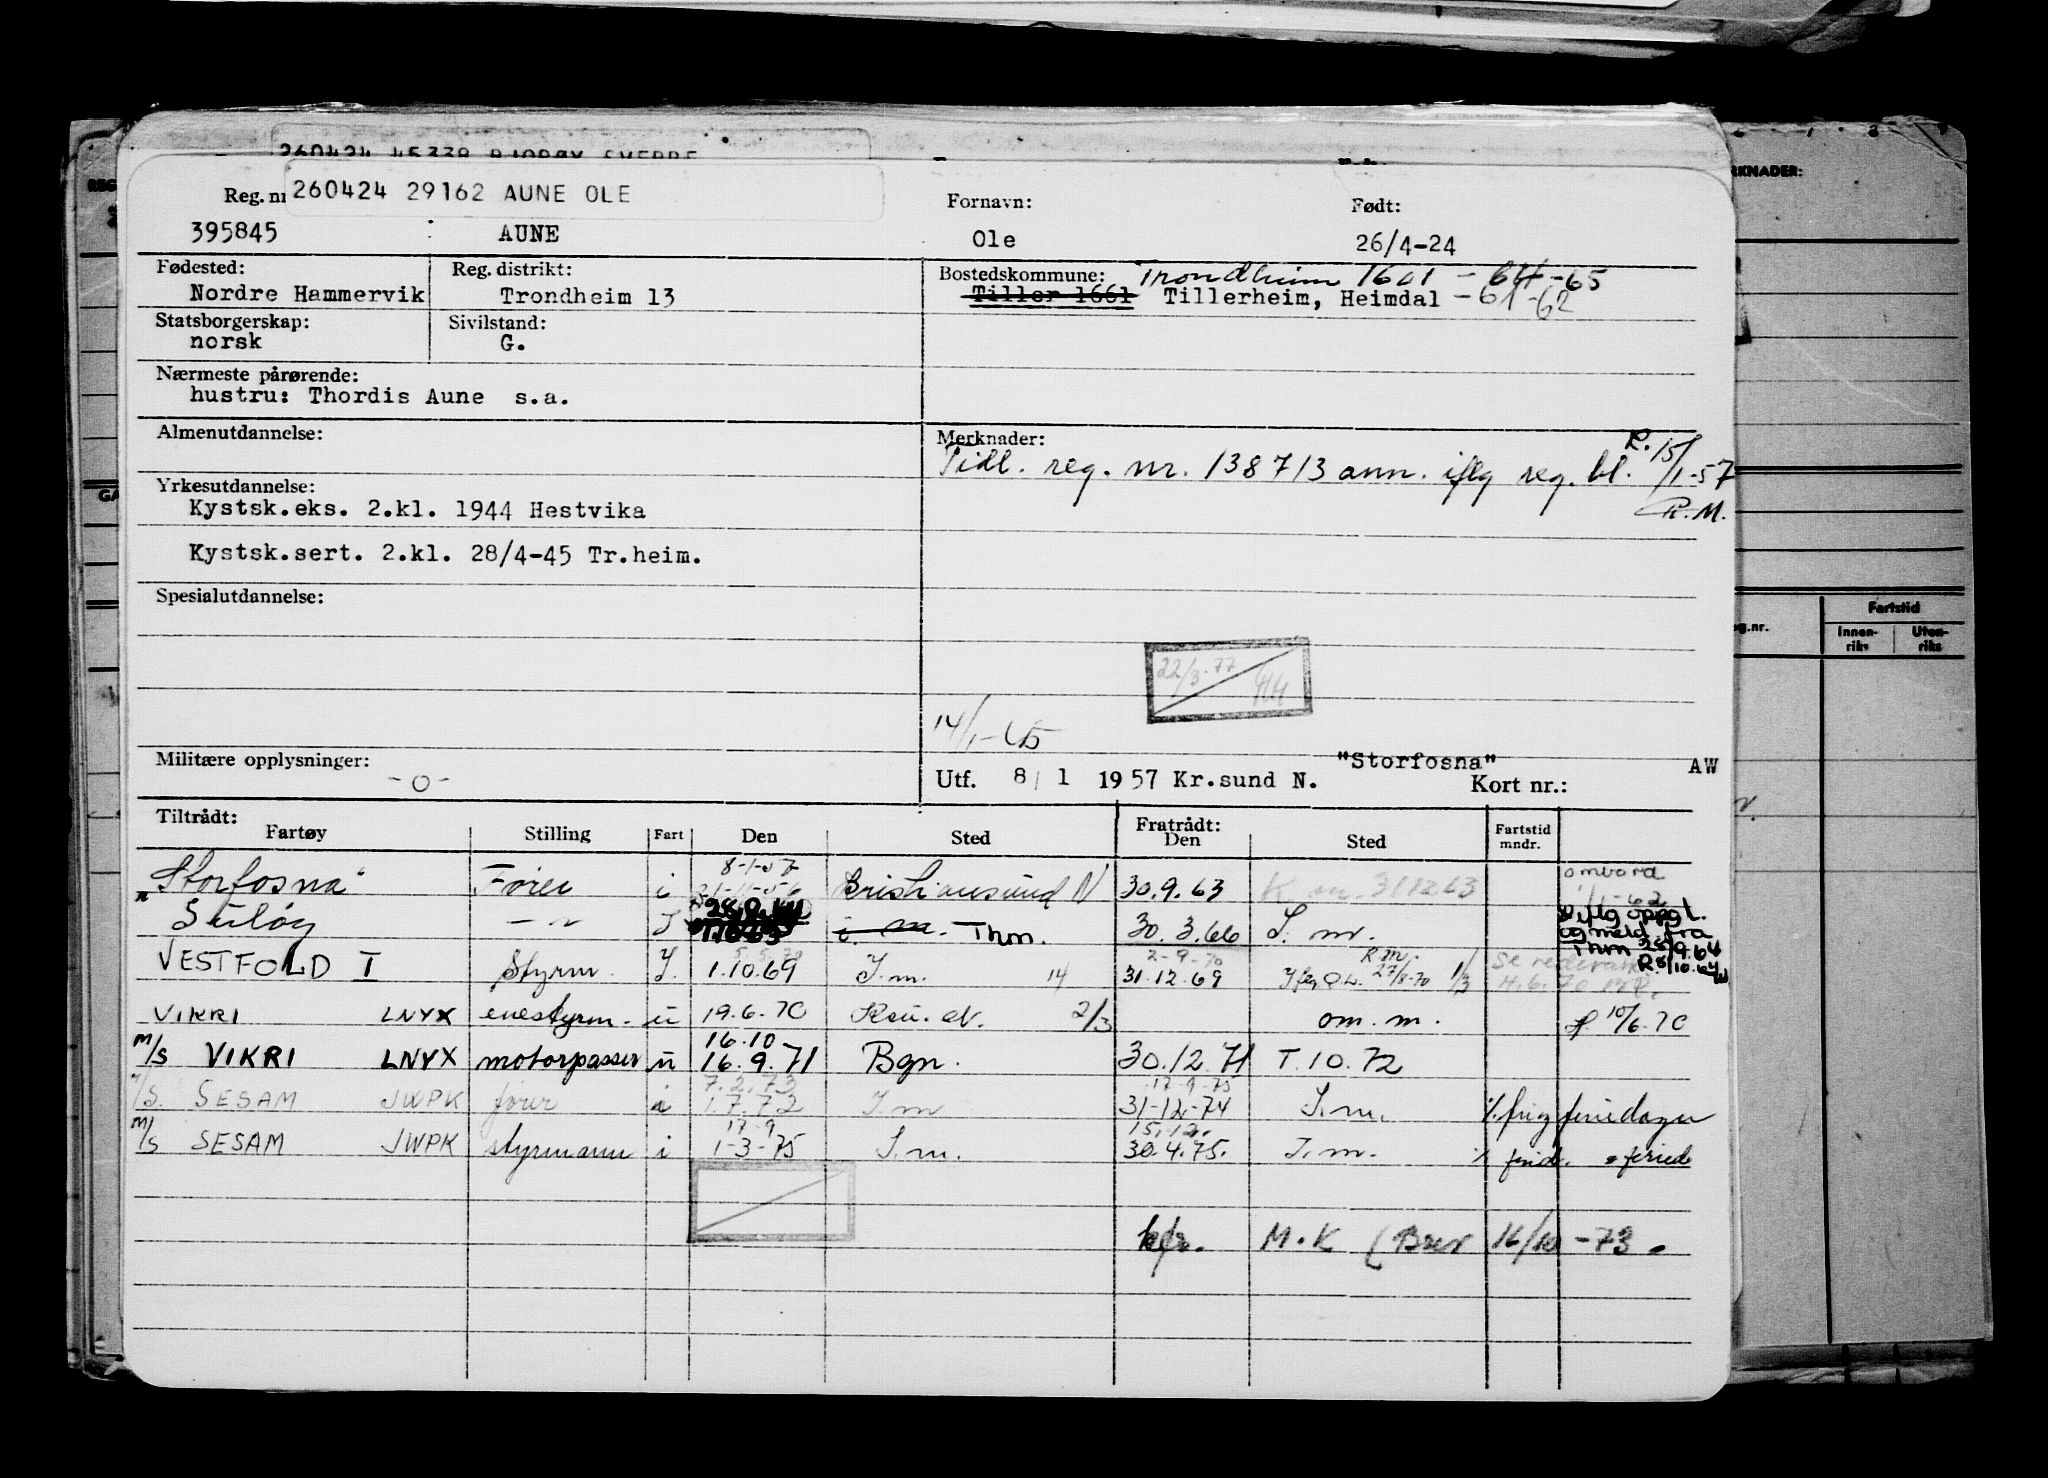 260424 29162 AUNE OLE
Reg. nr Fornavn: Født:
395845 AUNE Ole 26/4-24
Fødested: Reg. distrikt: Bostedskommune: Trondheim 1601 - 64-65
Nordre Hammervik Trondheim 13 Tiller 1661 Tillerheim, Heimdal - 61-62
Statsborgerskap: Sivilstand:
norsk G.
Nærmeste pårørende:
hustru: Thordis Aune s.a.
Almenutdannelse: Merknader:
Tidl. reg. nr. 138713 ann. iflg reg. bl. R. 15/1-57
R.M.
Yrkesutdannelse:
Kystsk.eks. 2.kl. 1944 Hestvika
Kystsk.sert. 2.kl. 28/4-45 Tr.heim.
Spesialutdannelse:
22/3.77
14/1-65
Militære opplysninger: -0-
Utf. 8/1 1957 Kr.sund N. "Storfosna" Kort nr.: AW
Tiltrådt: Fratrådt:
Fartøy Stilling Fart Den Sted Den Sted Fartstid mndr.
8-1-57 ombord
"Storfosna" Fører i 21-11-56 Kristiansund N 30.9.63 K on. 311263 1/1-62
Suløy - " - I 1.10.63 i. m. Thm. 30.3.66 I. m. iflg oppg t.
og meld. fra
Thm 28/9.64
R 8/10.64
VESTFOLD I Styrm. I. 1.10.69 I.m. 14 2-9-70 31.12.69 R.m. 27/8-70 1/3
VIKRI LNYX enestyrm. u 19.6.70 Ksu. N. 2/3 om. m. 10/6.70
16.10
M/S VIKRI LNYX motorpasser u 16.9.71 Bgn. 30.12.71 T.10.72
7.2.73 17-9-75
M/S. SESAM JWPK fører i 1.7.72 I.m 31-12-74 I.m. % frig feriedager
17-9 15.12.
M/S SESAM JWPK styrmann i 1-3-75 I.m. 30.4.75. I.m. % frid. + feried
kfr. M.K (Brev 16/10-73.
RKNADER:
Fartstid
Innenriks Utenriks